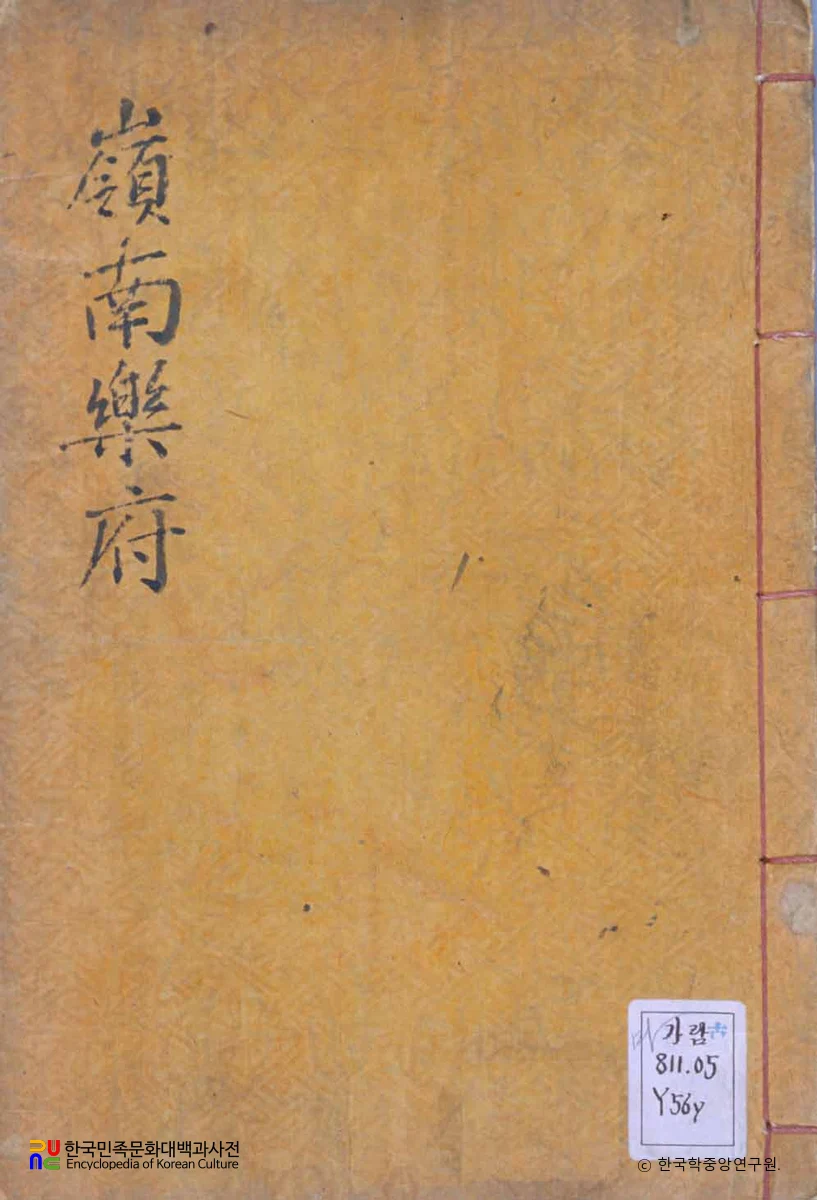 嶺南樂府
가람古
811.05
Y56y
한국민족문화대백과사전
Encyclopedia of Korean Culture
© 한국학중앙연구원.